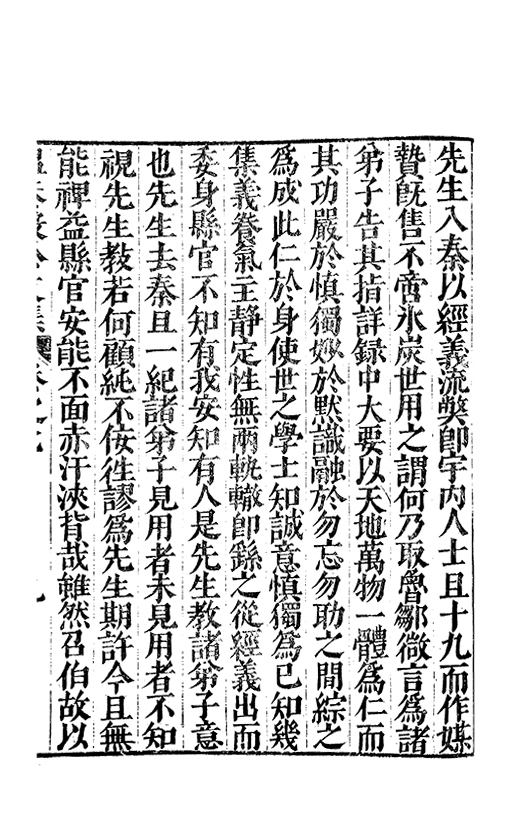 先生入秦以經義流獘卽宇内人士且十九而作媒
贄旣售不啻氷炭世用之謂何乃取魯鄒微言爲諸
弟子吿其指詳録中大要以天地萬物一體爲仁而
其功嚴於慎獨妙於默識融於勿忘勿助之間綜之
爲成此仁於身使世之學士知誠意慎獨爲已知幾
集義養氣主靜定性無兩軌轍卽繇之從經義出而
委身縣官不知有我安知有人是先生教諸弟子意
也先生去秦且一紀諸弟子見用者未見用者不知
視先生教若何顧純不佞徃謬爲先生期許今且無
能裨益縣官安能不面赤汗浹背哉雖然召伯故以
文集 卷之 九